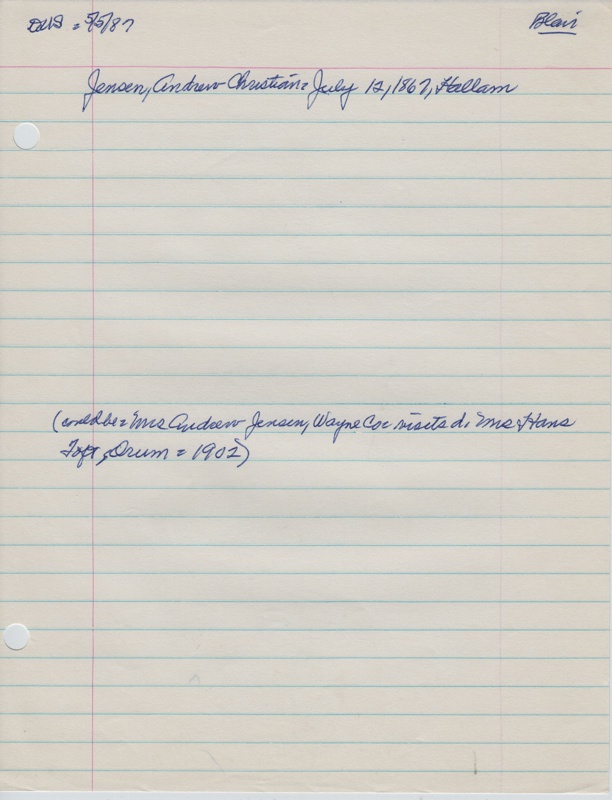 5/5/87 Blair
Jensen, Andrew Christian = July 12, 1867, Hallam
(could be = Mrs Andrew Jensen, Wayne Co = visits d. Mrs. Hans
Toft, Orum = 1902)